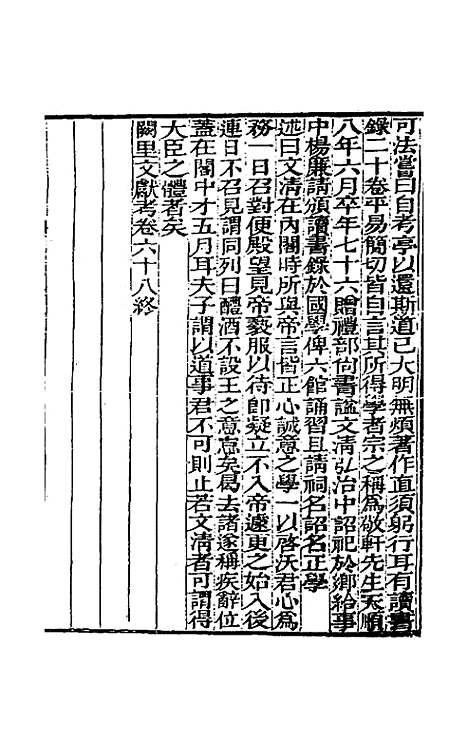 可法嘗曰自考亭以還斯道已大明無煩著作直須躬行耳有讀書
錄二十卷平易簡切皆自言其所得學者宗之稱為敬軒先生天順
八年六月卒年七十六贈禮部尚書諡文清弘治中詔祀於鄉給事
中楊廉請頒讀書錄於國學俾六館誦習且請祠名詔名正學
述曰文清在內閣時所與帝言皆正心誠意之學一以啓沃君心為
務一日召對便殿望見帝褻服以待即疑立不入帝遽更之始入後
連日不召見謂同列曰醴酒不設王之意怠矣曷去諸遂稱疾辭位
蓋在閣中才五月耳夫子謂以道事君不可則止若文清者可謂得
大臣之體者矣
闕里文獻考卷六十八終